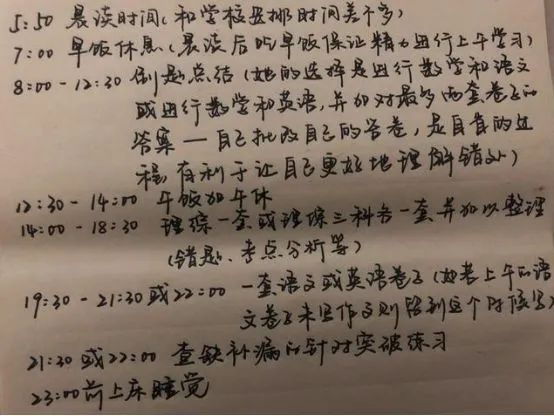 5:50 晨读时间(和学校安排时间差不多)
7:00 早饭休息(晨读后吃早饭保证精力进行上午学习)
8:00-12:30 刷题总结(她的选择是进行数学和语文
或进行数学和英语,并加对最多两套卷子的
答案—自己批改自己的答卷,是自省的过
程,有利于让自己更好地理解错处)
12:30-14:00 午饭加午休
14:00-18:30 理综一套或理综三科各一套并加以整理
(错题、考点分析等)
19:30-21:30或22:00 一套语文或英语卷子(如果上午的语
文卷子未写作文则留到这个时候写)
21:30 或22:00 查缺补漏的针对突破练习
23:00前上床睡觉